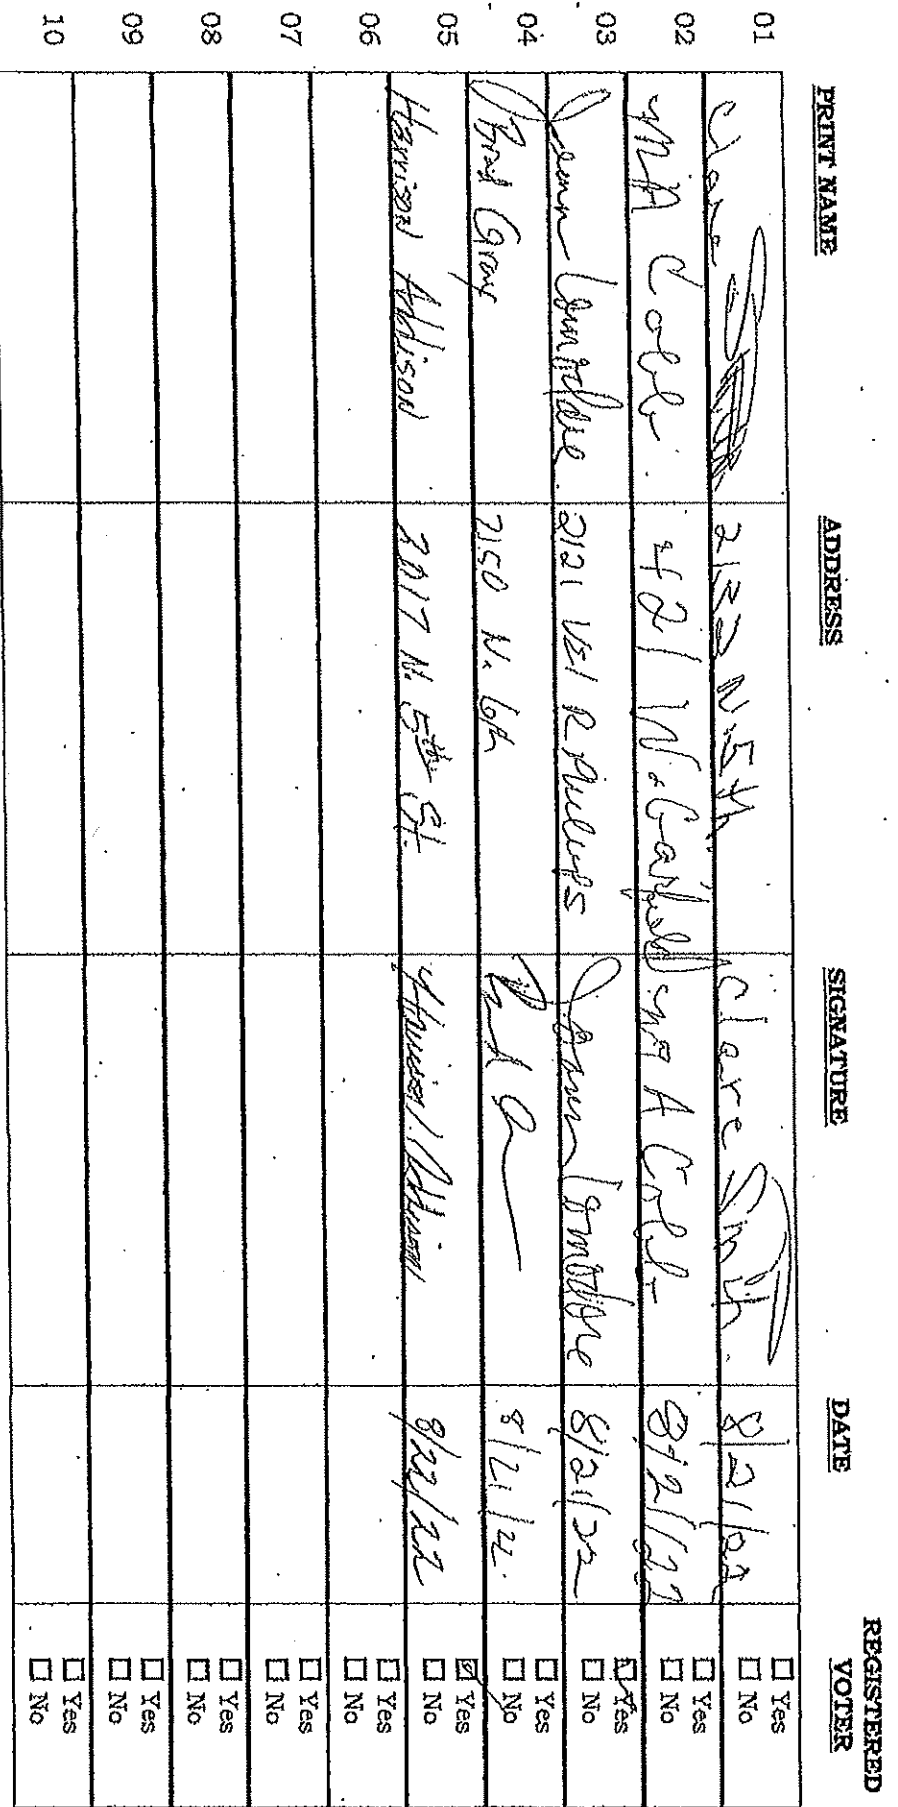 PRINT NAME ADDRESS SIGNATURE DATE REGISTERED VOTER
01 Clare 2133 N. 5th Clare Smith 8/21/22 □ Yes □ No
02 MA Cobb 421 W. Garfield MA Cobb 8/21/22 □ Yes □ No
03 2121 Vel R Phillips 8/21/22 □ Yes □ No
04 Brad Gray 2150 N. 6th 8/21/22 □ Yes □ No
05 Harrison Addison 2017 N. 5th St. Harrison Addison 8/22/22 □ Yes □ No
06 □ Yes □ No
07 □ Yes □ No
08 □ Yes □ No
09 □ Yes □ No
10 □ Yes □ No